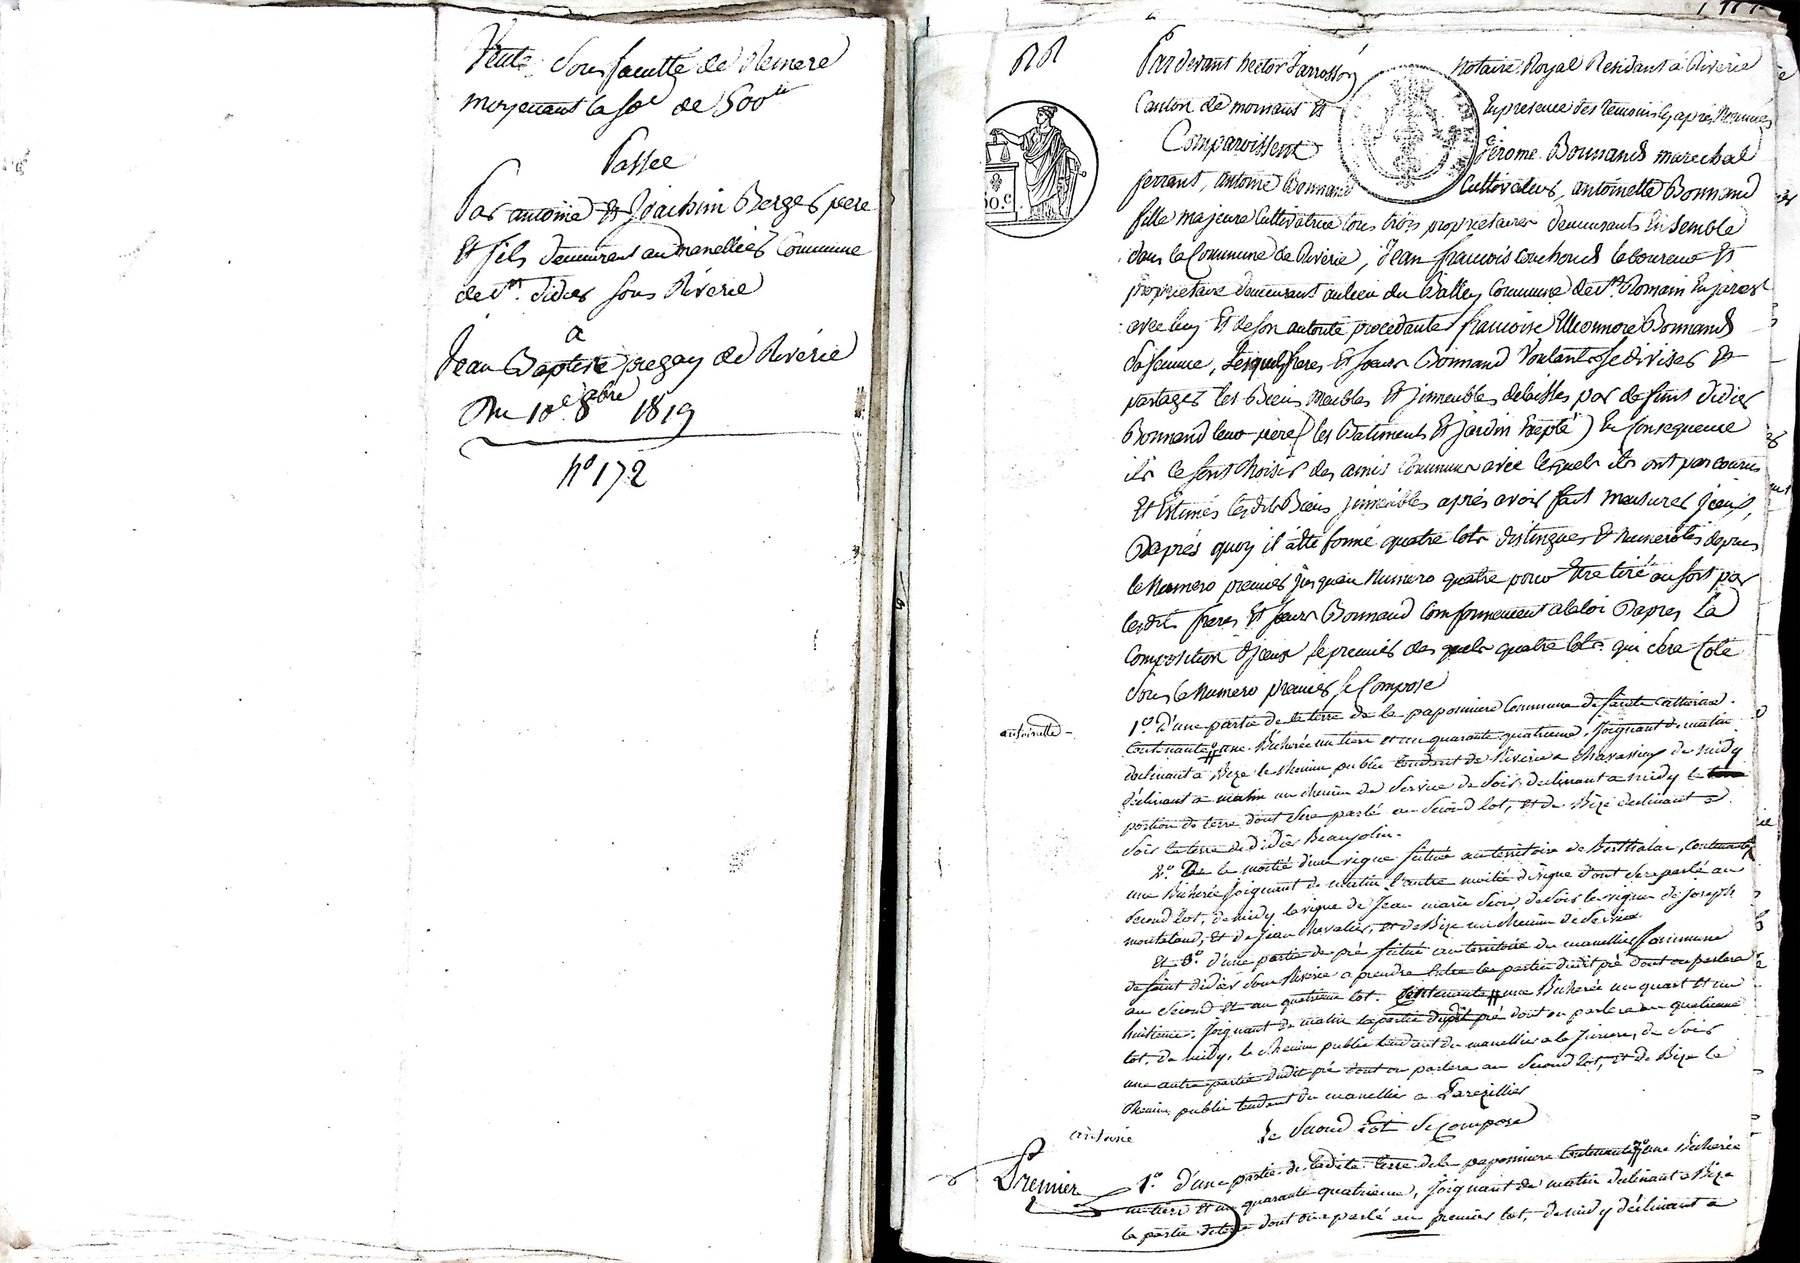 Vente Sous faculté de Remere
moyennant la Se de 500tt
Passée
Par antoine et Joachim Berger pere
Et fils demeurant au manellier Commune
de St. didier sous Riverie
a
Jean Baptiste pregay de Riverie
Du 10e 8bre 1819
No 172
Par devant hector Jarrosson notaire Royal Residant à Riverie
Canton de mornant Et En presence des temoins cy après Nommés
Comparoissent Jérome Bonnand marechal
ferrant, antoine Bonnand Cultivateur, antoinette Bonnand
fille majeure Cultivatrice tous trois proprietaires demeurants Ensemble
dans la Commune de Riverie, Jean francois couchoud laboureur Et
proprietaire demeurant au lieu du Balley Commune de St. Romain En jarest
avec luy Et de son autorité procedante francoise Elleonnore Bonnand
sa femme, Lesquels freres Et soeurs Bonnand Voulant se diviser Et
partager les Biens Meubles Et jmmeubles delaissés par defunt didier
Bonnand leur pere (les Batiments Et jardin Exepté) En Consequence
ils se sont choisis des amis Communs avec lesquels ils ont parcourus
Et Estimés lesdits Biens jmmeubles après avoir fait mesurer jceux,
D'après quoy il a été formé quatre lots distingués Et Numerotés depuis
le Numero premier jusqu'au Numero quatre pour Etre tiré au sort par
lesdits freres Et soeurs Bonnand Conformement a la loi D'apres La
Composition d'jceux le premier des quels quatre lots qui sera Coté
Sous le Numero premier se Compose
antoinette
1o. d'une partie de la terre de la paponniere Commune de sainte Catherine
Contenante une Bicherée un tiers et un quarante quatrieme, Joignant de matin
declinant a Bize le chemin public tendant de Riverie a Chavassieux de midy
déclinant a matin un chemin de Service de Soir declinant a midy la
portion de terre dont Sera parlé au Second lot, et de Bize declinant a
Soir la terre de Didier Beaujolin.
2o. De la moitié d'une vigne située au territoire de Berthalai, Contenante
une Bicherée Joignant de matin l'autre moitié de vigne dont Sera parlé au
Second lot, de midy la vigne de Jean marie Sion, de Soir les vignes de Joseph
montaland, Et de Jean Chevalier, et de Bize un chemin de Service
Et 3o. d'une partie de pré située au territoire du manellier Commune
de Saint didier Sous Riverie a prendre Entre les parties dudit pré dont on parlera
au Second et au quatrieme lot. Contenante une Bicherée un quart Et un
huitieme. Joignant de matin la partie dudit pré dont on parlera au quatrieme
lot, de midy, le chemin public tendant du manellier a la de Soir
une autre partie dudit pré dont on parlera au Second lot, et de Bize le
chemin public tendant du manellier a
antoine
Le Second Lot Se Compose
Premier
1o. d'une partie de Ladite terre de la paponniere Contenante une Bicherée
un tiers et un quarante quatrieme, Joignant de matin declinant a Bize
la partie de terre dont on a parlé au premier lot, de midy déclinant a